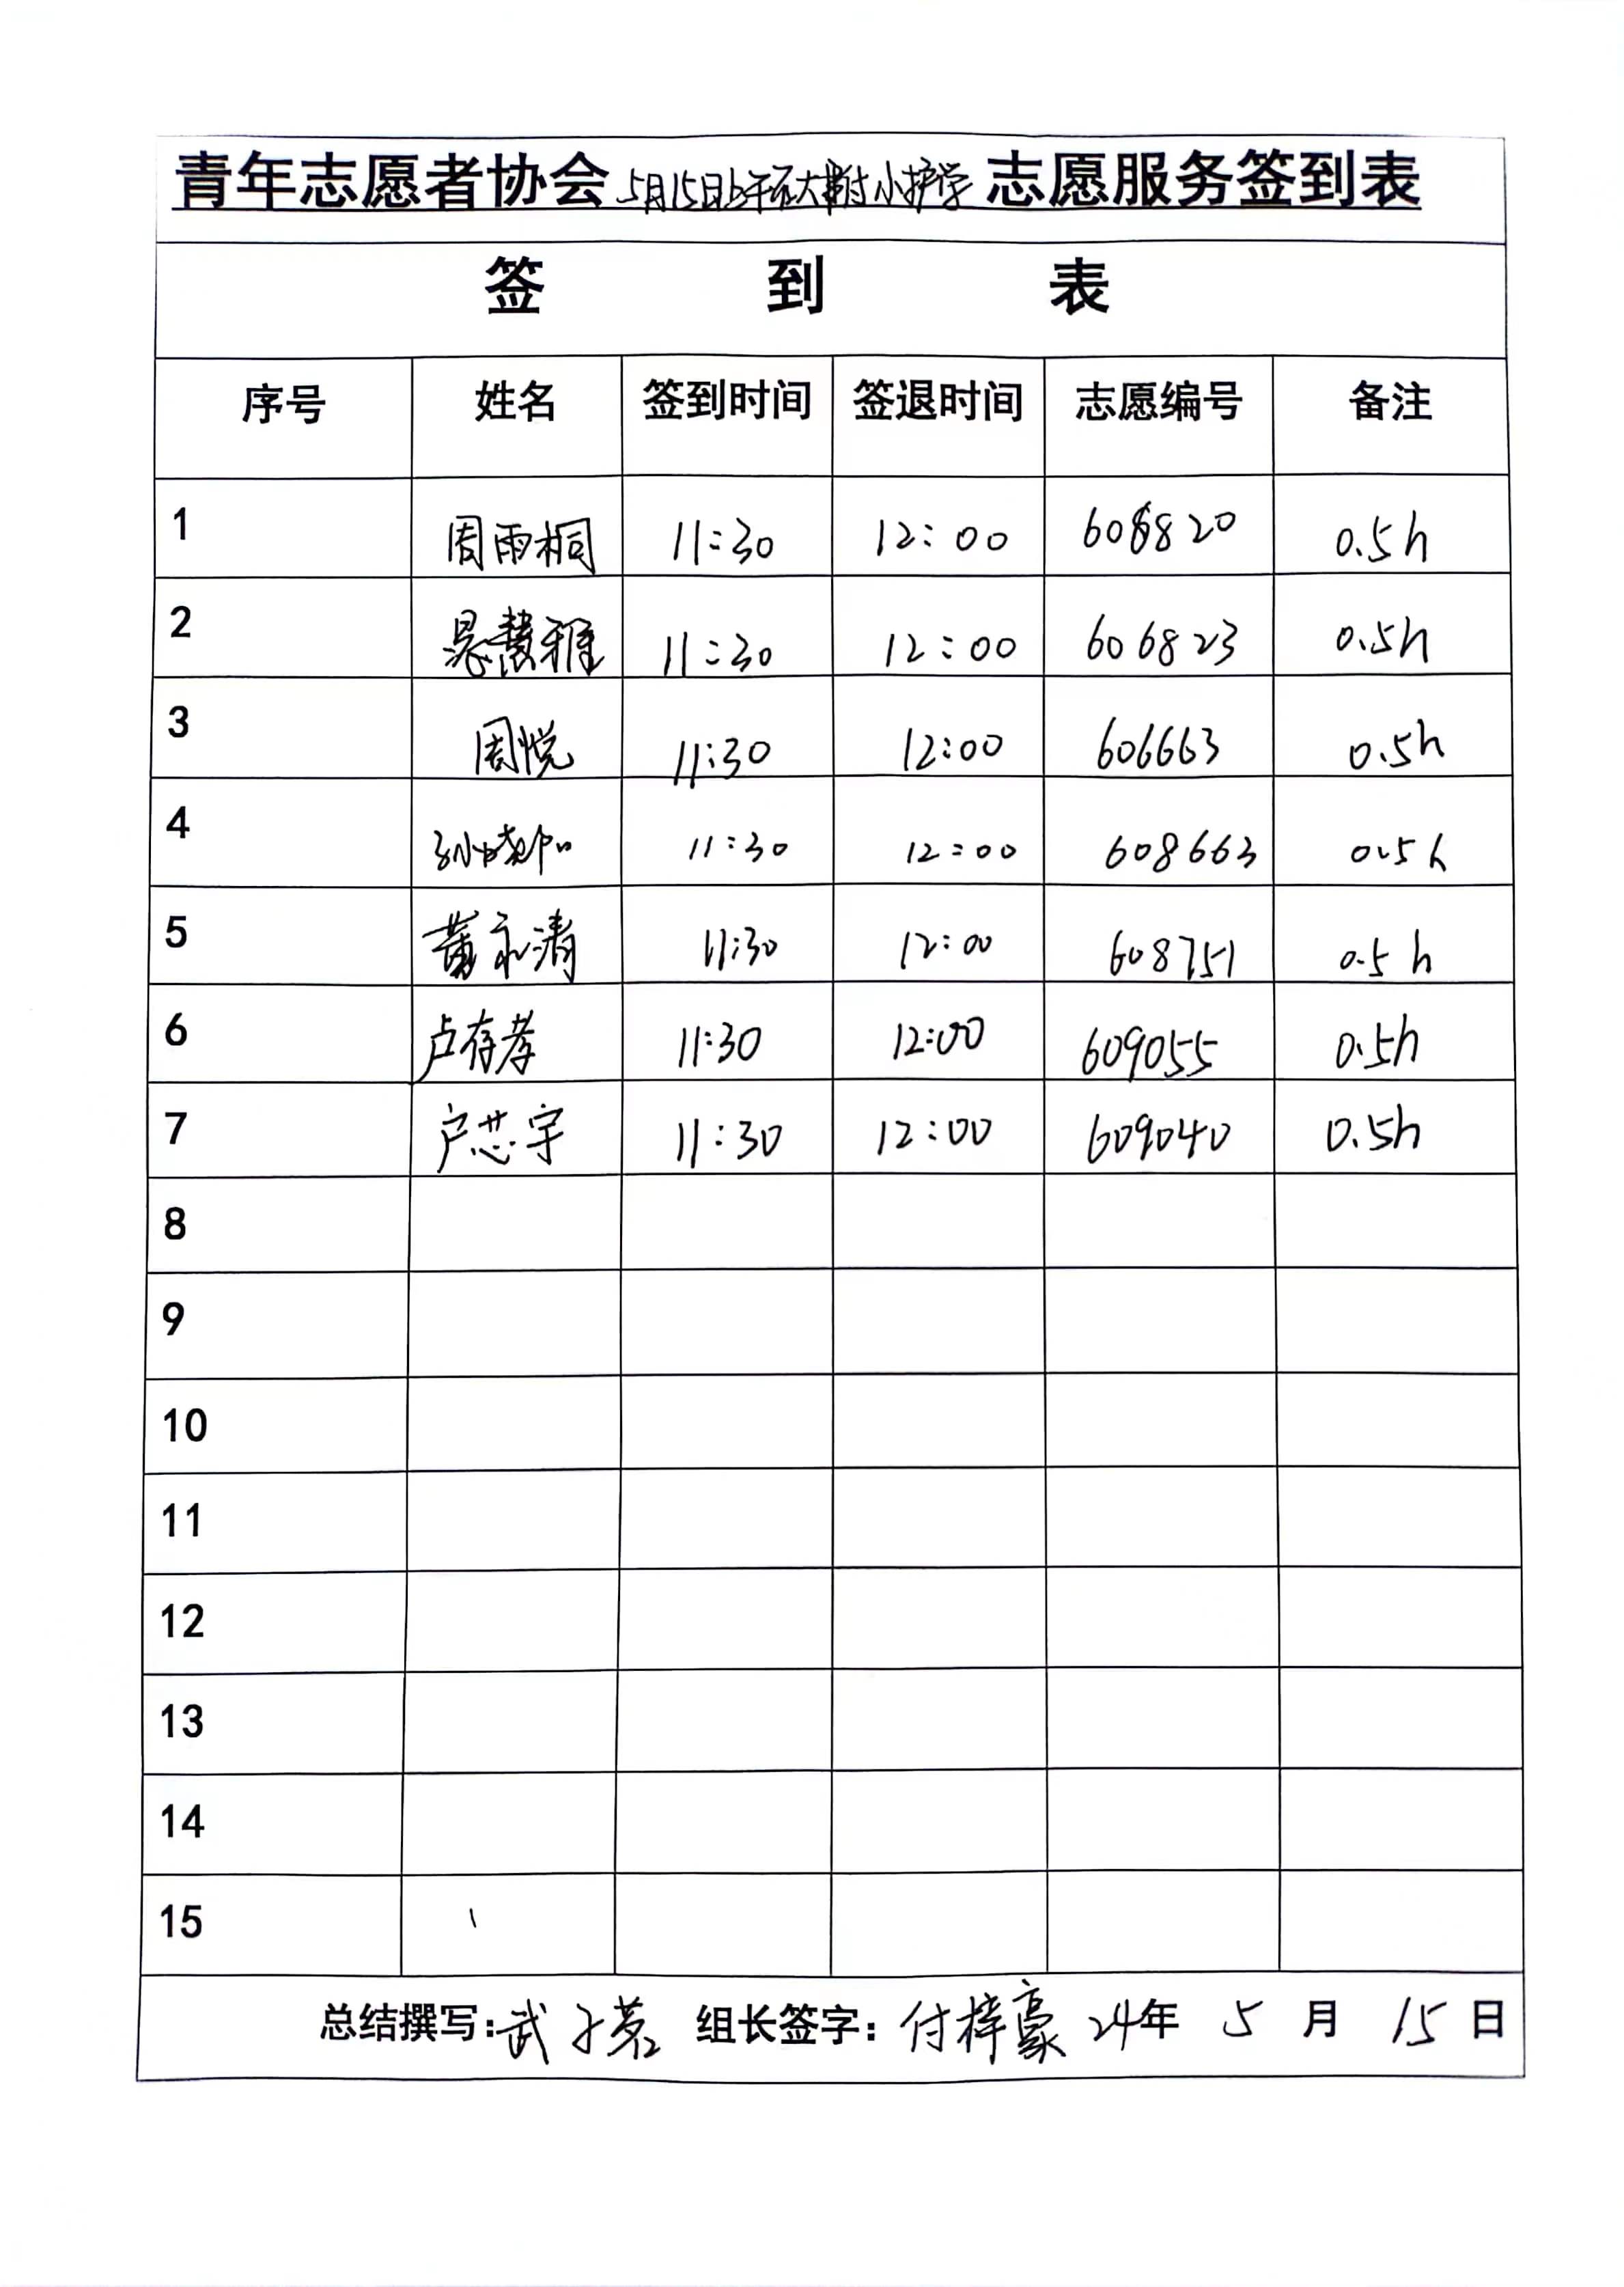 青年志愿者协会5月15日上午石大附小护学志愿服务签到表
签 到 表
序号 姓名 签到时间 签退时间 志愿编号 备注
1 周雨桐 11:30 12:00 606820 0.5h
2 慧雅 11:30 12:00 606823 0.5h
3 周悦 11:30 12:00 606663 0.5h
4 孙 11:30 12:00 608663 0.5h
5 董永清 11:30 12:00 608751 0.5h
6 卢存孝 11:30 12:00 609055 0.5h
7 户芯宇 11:30 12:00 609040 0.5h
8
9
10
11
12
13
14
15
总结撰写:武子茗 组长签字:付梓豪 24年 5 月 15 日